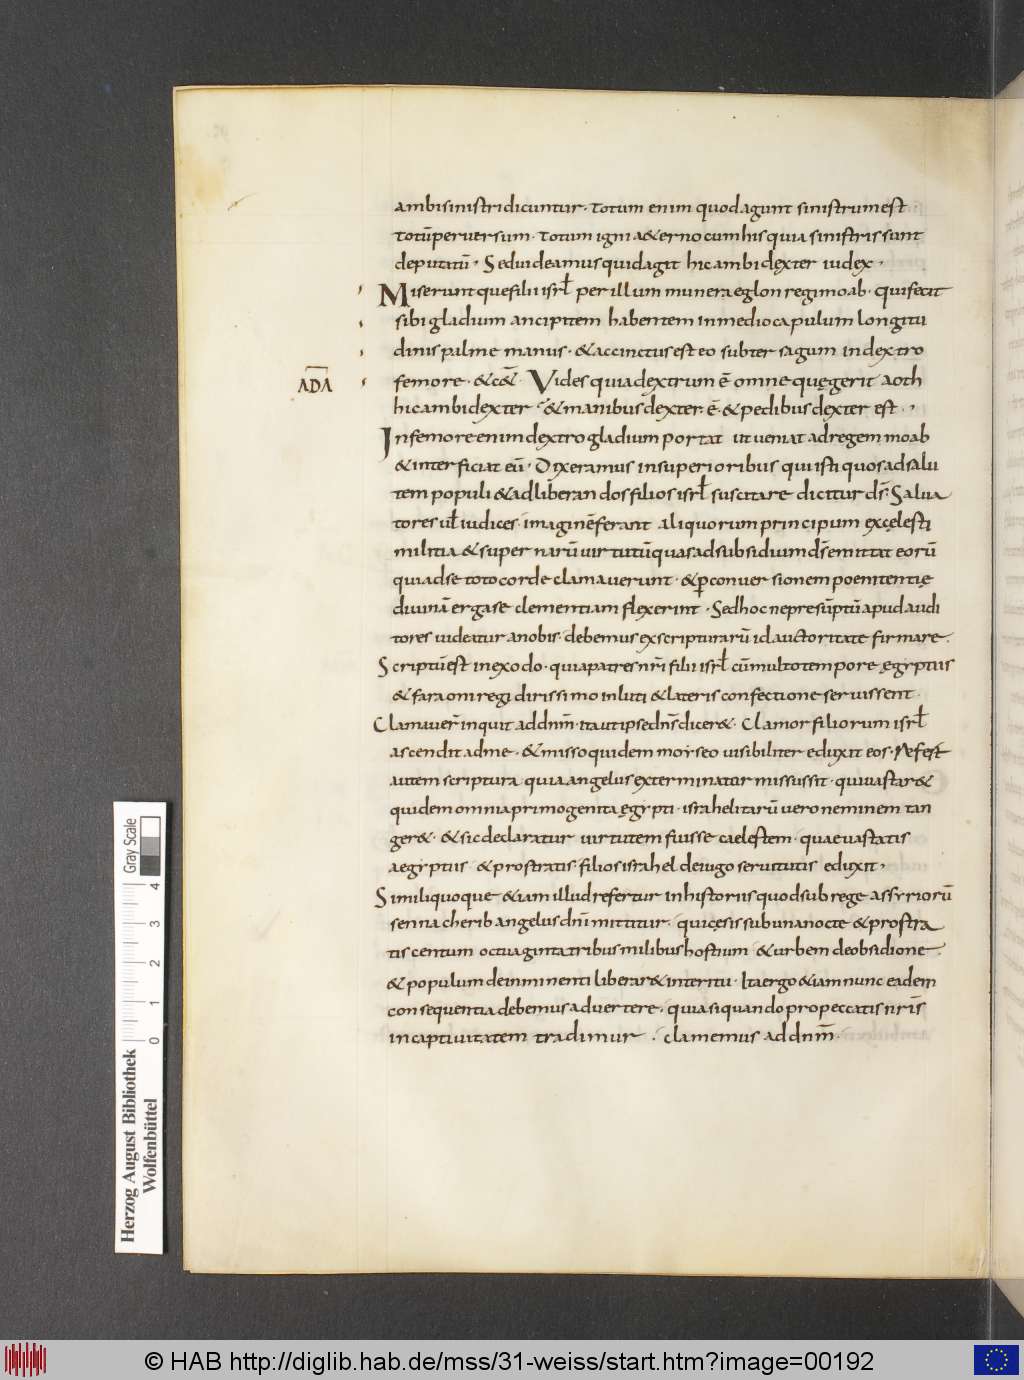 ambisinistri dicuntur. totum enim quod agunt sinistrum est
totū peruersum. totum igni aeterno cum his quia sinistris sunt
deputatū. Sed uideamus quid agit hic ambidexter iudex.
Miseruntque filii isrł per illum munera eglon regi moab. qui fecit
sibi gladium ancipitem habentem in medio capulum longitu
dinis palme manus. & accinctus est eo subter sagum in dextro
ADA
femore. &c&. Vides quia dextrum ē omne quę gerit aoth
hic ambidexter & manibus dexter ē. & pedibus dexter est.
In femore enim dextro gladium portat ut ueniat ad regem moab
& interficiat eū. Dixeramus in superioribus qui isti quos ad salu
tem populi & ad liberandos filios isrł suscitare dicitur dš. Salua
tores uł iudices. imaginē ferant aliquorum principum ex cęlesti
militia & supernarū uirtutū quas ad subsidium dš emittat eorū
qui ad se toto corde clamauerunt. & p conuersionem poenitentię
diuinā erga se clementiam flexerint. Sed hoc ne presūptū apud audi
tores uideatur a nobis. debemus ex scripturarū id auctoritate firmare.
Scriptū est in exodo. quia patres nr̄i filii isrł cū multo tempore ęgyptiis
& faraoni regi dirissimo in luti & lateris confectione seruissent.
Clamauer̄ inquit ad dnm̄. ita ut ipse dn̄s diceret. Clamor filiorum isrł
ascendit ad me. & misso quidem moyseo uisibiliter eduxit eos. Refert
autem scriptura quia angelus exterminator missus sit. qui uastaret
quidem omnia primogenita ęgypti. israhelitarū uero neminem tan
geret. & sic declaratur uirtutem fuisse caelestem. quae uastatis
aegyptiis & prostratis filios israhel de iugo seruitutis eduxit.
Simili quoque etiam illud refertur in historiis quod sub rege assyriorū
sennacherib angelus dn̄i mittitur. qui cęsis sub una nocte & prostra
tis centum octuaginta tribus milibus hostium & urbem de obsidione.
& populum de inminenti liberaret interitu. Ita ergo etiam nunc eadem
consequentia debemus aduertere. quia si quando pro peccatis nr̄is
in captiuitatem tradimur. clamemus ad dnm̄.
Herzog August Bibliothek
Wolfenbüttel
Gray Scale
0 1 2 3 4
© HAB http://diglib.hab.de/mss/31-weiss/start.htm?image=00192